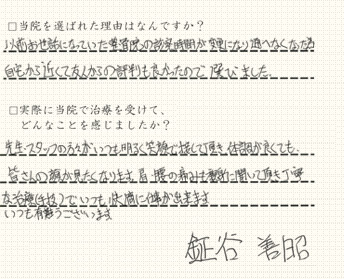 □当院を選ばれた理由はなんですか？
以前お世話になっていた整骨院の診察時間が変更になり通へなくなった為
自宅から近くて友人からの評判も良かったので選びました。
□実際に当院で治療を受けて、
どんなことを感じましたか？
先生・スタッフの方々がいつも明るく笑顔で接して頂き、体調が良くても、
皆さんの顔が見たくなります。肩、腰の痛みも親身に聞いて頂き丁寧
な治療(手技)でいつも快適に仕事が出来ます
いつも有難うございます
鉦谷 善昭